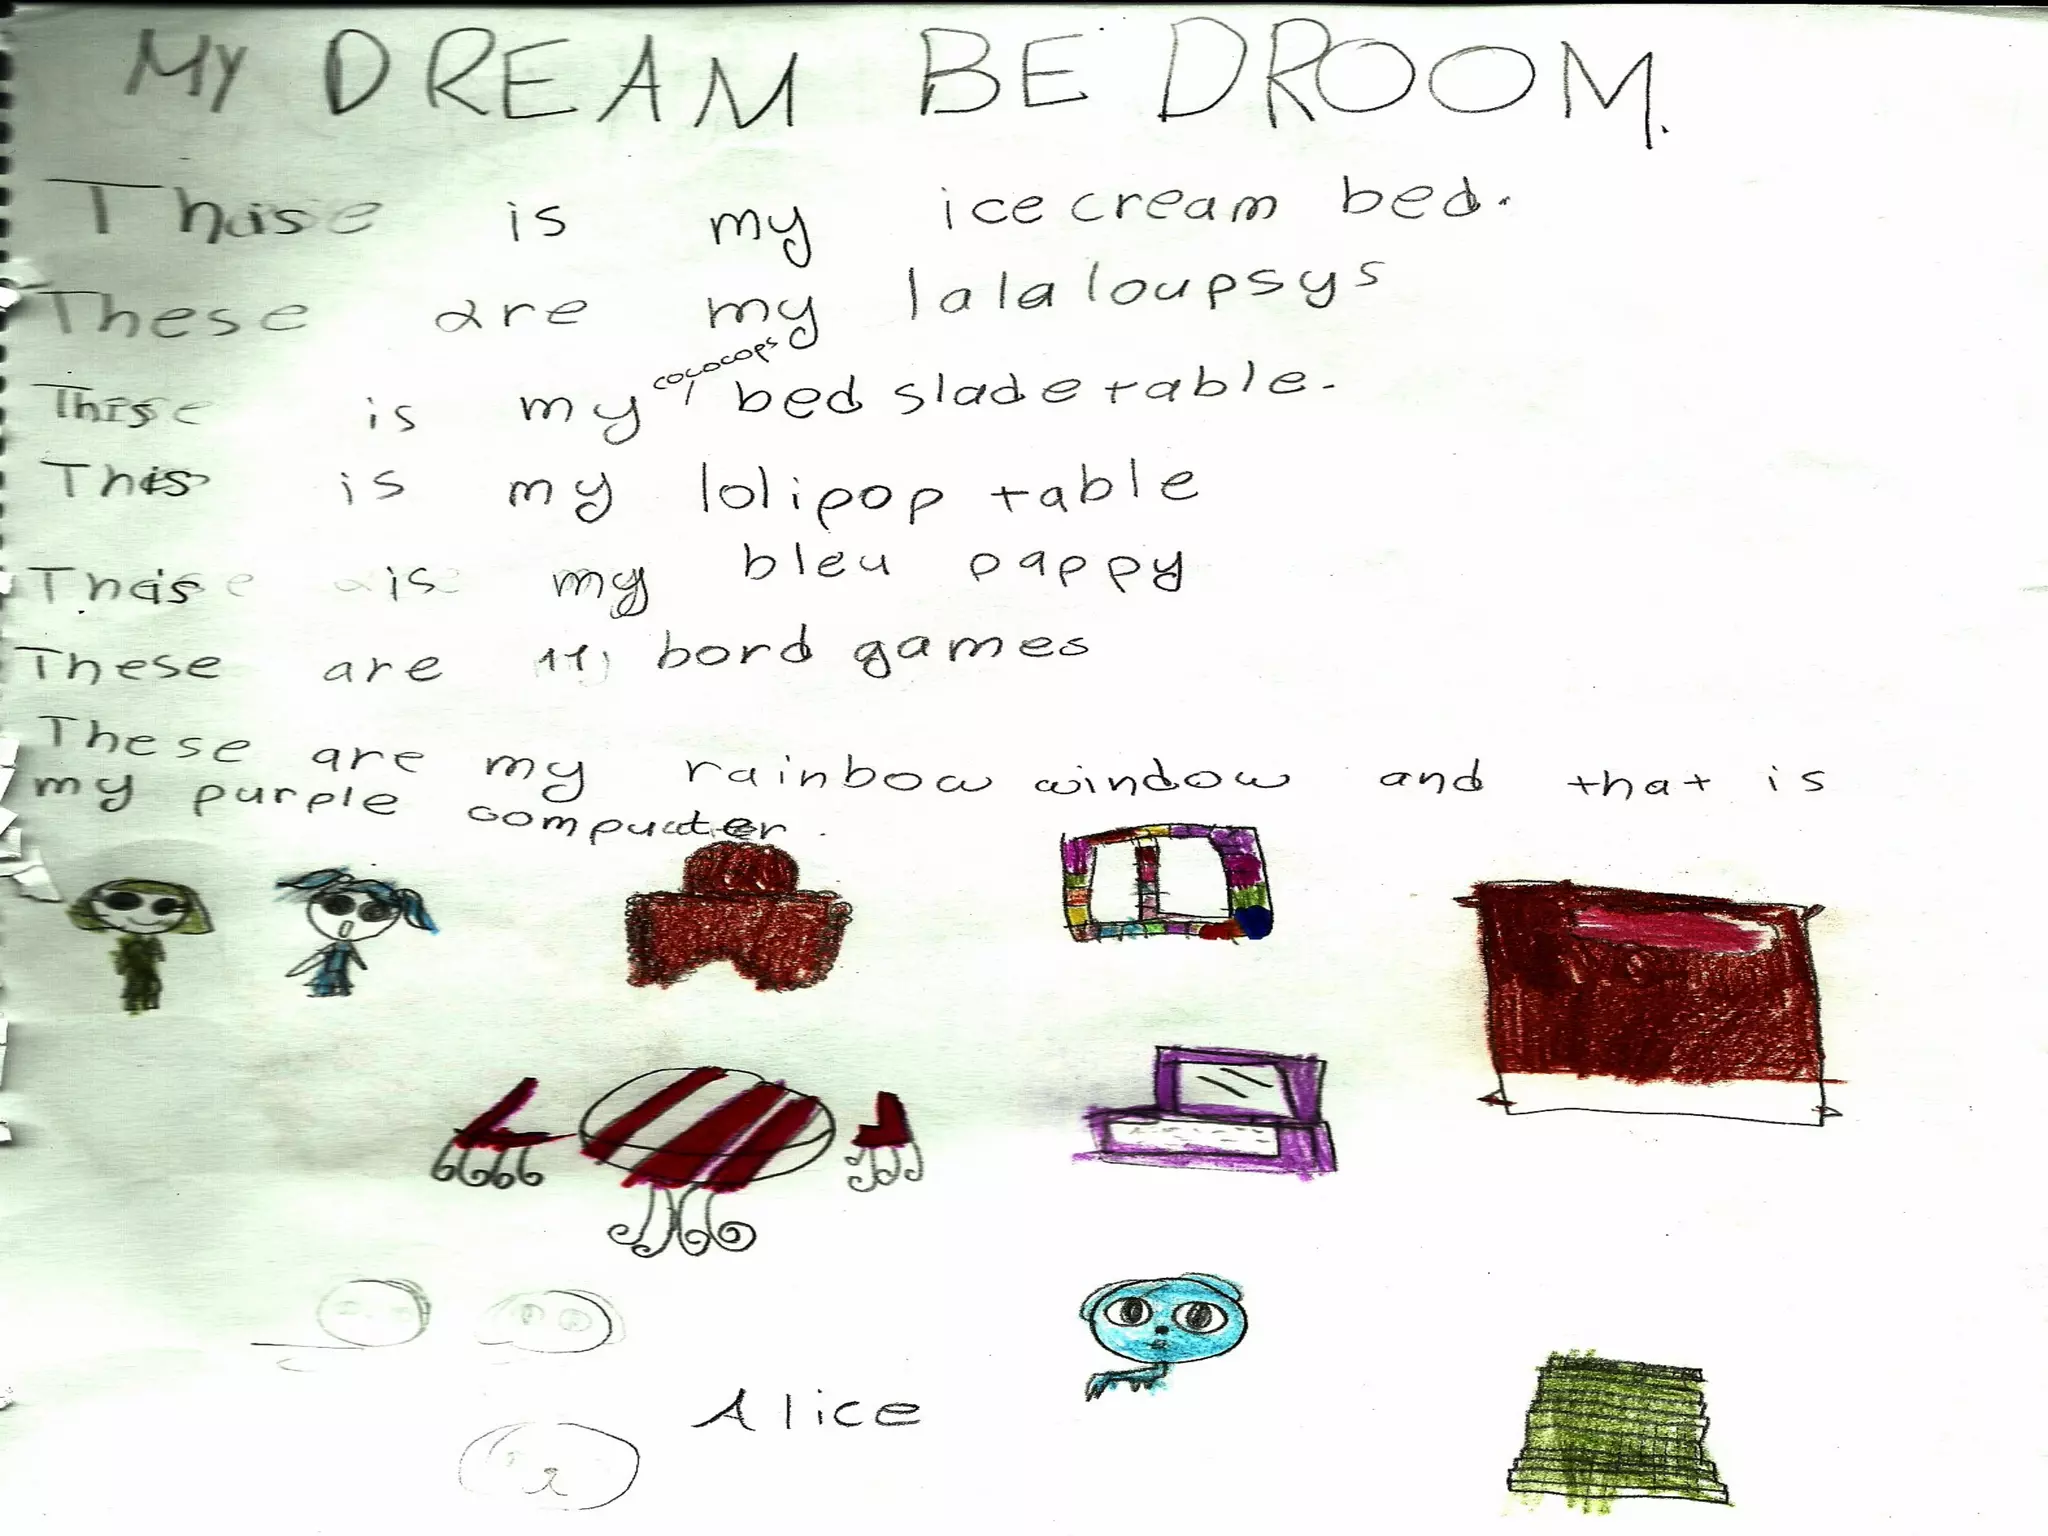 MY DREAM BEDROOM.
This is my icecream bed.
These are my lalaloupsys
This is my cococops bed sladetable.
This is my lolipop table
This is my bleu pappy
These are 11 bord games
These are my rainbow window and that is
my purple computer.
Alice